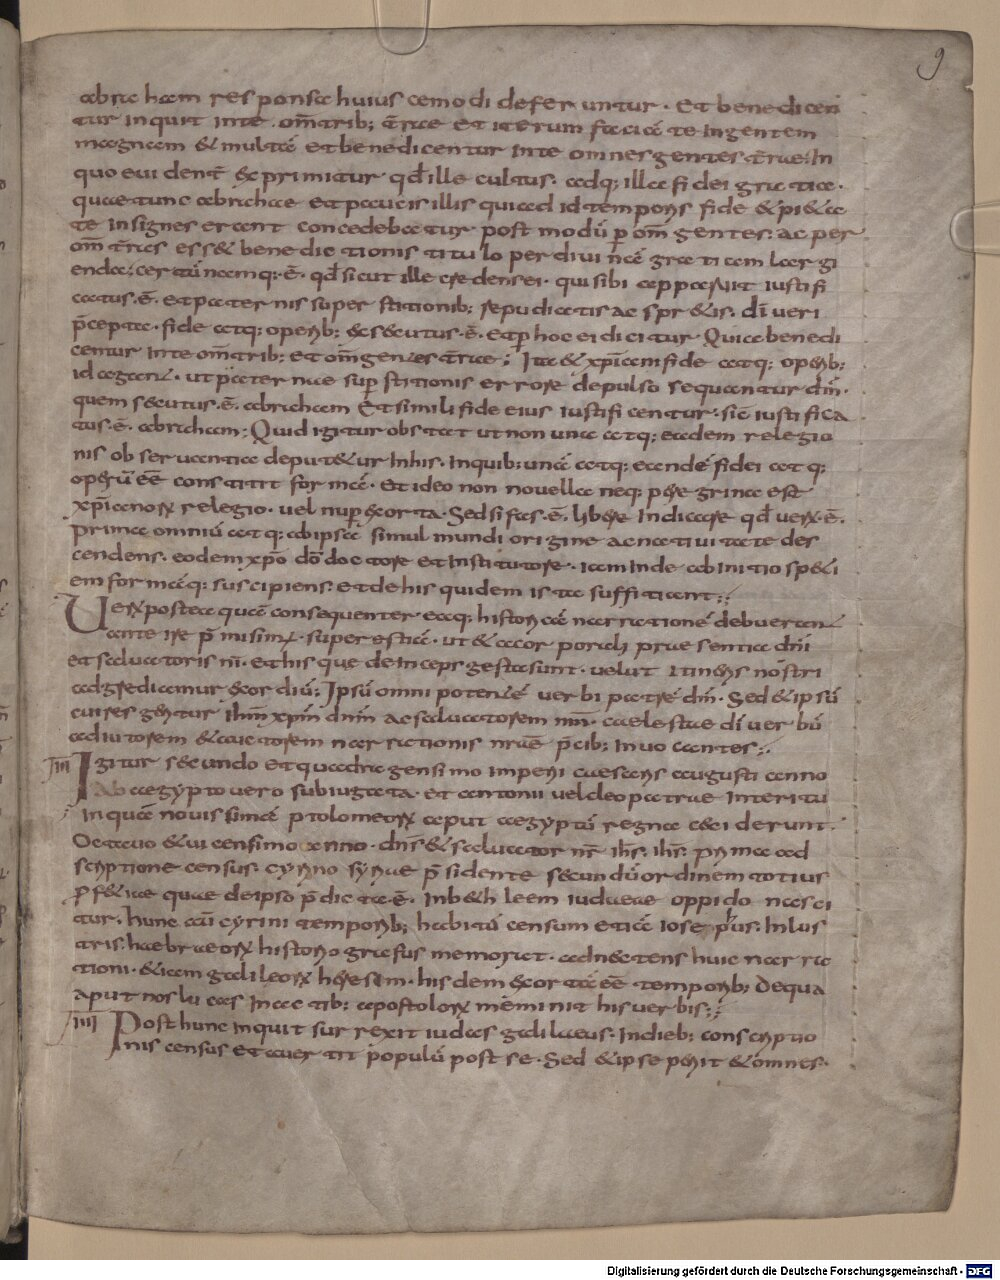 9
abraham responsa huiuscemodi deferuntur. Et benedicen
tur inquit inte om̄ trib; t̄rae et iterum faciā te Ingentem
magnam & multā et benedicentur Inte omnes gentes t̄rae. In
quo euident̄ &primitur qđ ille cultus. adq; illa fidei gratia.
quae tunc abrahae et paucis illis qui ad id temporis fide & pi&a
te insignes erant concedebatur post modū p om̄ gentes. ac per
om̄ t̄ras ess& benedictionis titulo per diuinā gratiam largi
enda; certū namq; ē. qđ sicut ille credens ei. qui sibi apparuit iustifi
catus. ē. et paternis superstitionib; repudiatis ac spr&is. dī ueri
p̄cepta. fide atq; operib; & secutus. ē. et p hoc ei dicitur. Quia benedi
centur Inte om̄ trib; et om̄ gentes t̄rae; Ita & xp̄iam fide atq; operib;
id agant. ut paternae supstitionis errore depulso sequantur dn̄m.
quem secutus. ē. abraham Et simili fide eius iustificentur. sic iustifica
tus. ē. abraham; Quid igitur obstat ut non una atq; eadem relegio
nis obseruantia deput&ur Inhis. Inquib; unā atq; eandē fidei atq;
operū ēē constitit formā. Et ideo non nouella neq; peregrina est
xp̄ianoꝝ relegio. uel nup &orta. Sed si fas. ē. libere Indicare qđ uerꝝ. ē.
prima omniū atq; ab ipsā simul mundi origine ac natiuitate des
cendens. eodem xp̄o dō doctore et Institutore. iam inde ab Initio speci
em formāq; suscipiens. et de his quidem ista sufficiant;;
Uerꝝ postea quā consequenter eaq; historicā narrationē debuerant
ante ire p̄misimꝰ. superest iā. ut & accorporali praesentia dn̄i
et saluatoris nr̄i. et his que deinceps gesta sunt. uelut Itineris nostri
adgrediamur &ordiū; Ipsū omnipotentē uerbi patrē dm̄. Sed & ipsū
cuires geritur ihm̄ xpm̄ dnm̄ ac saluatorem nrm̄. caeleste dī uerbū
adiutorem & auctorem narrationis nrae p̄cib; Inuocantes;.
III Igitur secundo et quadragensimo imperii caesaris augusti anno
Ab aegypto uero subiugata. et antonii uel cleopatrae Interitu
In quā nouissimā ptolomeoꝝ caput aegyptū regna ceciderunt.
Octauo & uicensimo anno. dns̄ & saluator nr̄. ihs̄. ihs̄. prima ad
scriptione census. cyrino syriae p̄sidente secundū ordinem totius
profetiae quae de ipso p̄dicta ē. Inb&h leem iudaeae oppido nasci
tur. hunc aū cyrini temporib; habitū censum etiā iosephus. Inlus
tris. haebraeoꝝ historiografus memorat. adnectens huic narra
tioni. &iam galileoꝝ heresim. hisdem &ortā ēē temporib; De qua
aput nos lucas Inactib; apostoloꝝ meminit his uerbis;;
IIII Post hunc inquit surrexit iudas galilaeus. In dieb; conscriptio
nis census et auertit populū post se. Sed & ipse periit & omnes.
Digitalisierung gefördert durch die Deutsche Forschungsgemeinschaft - DFG